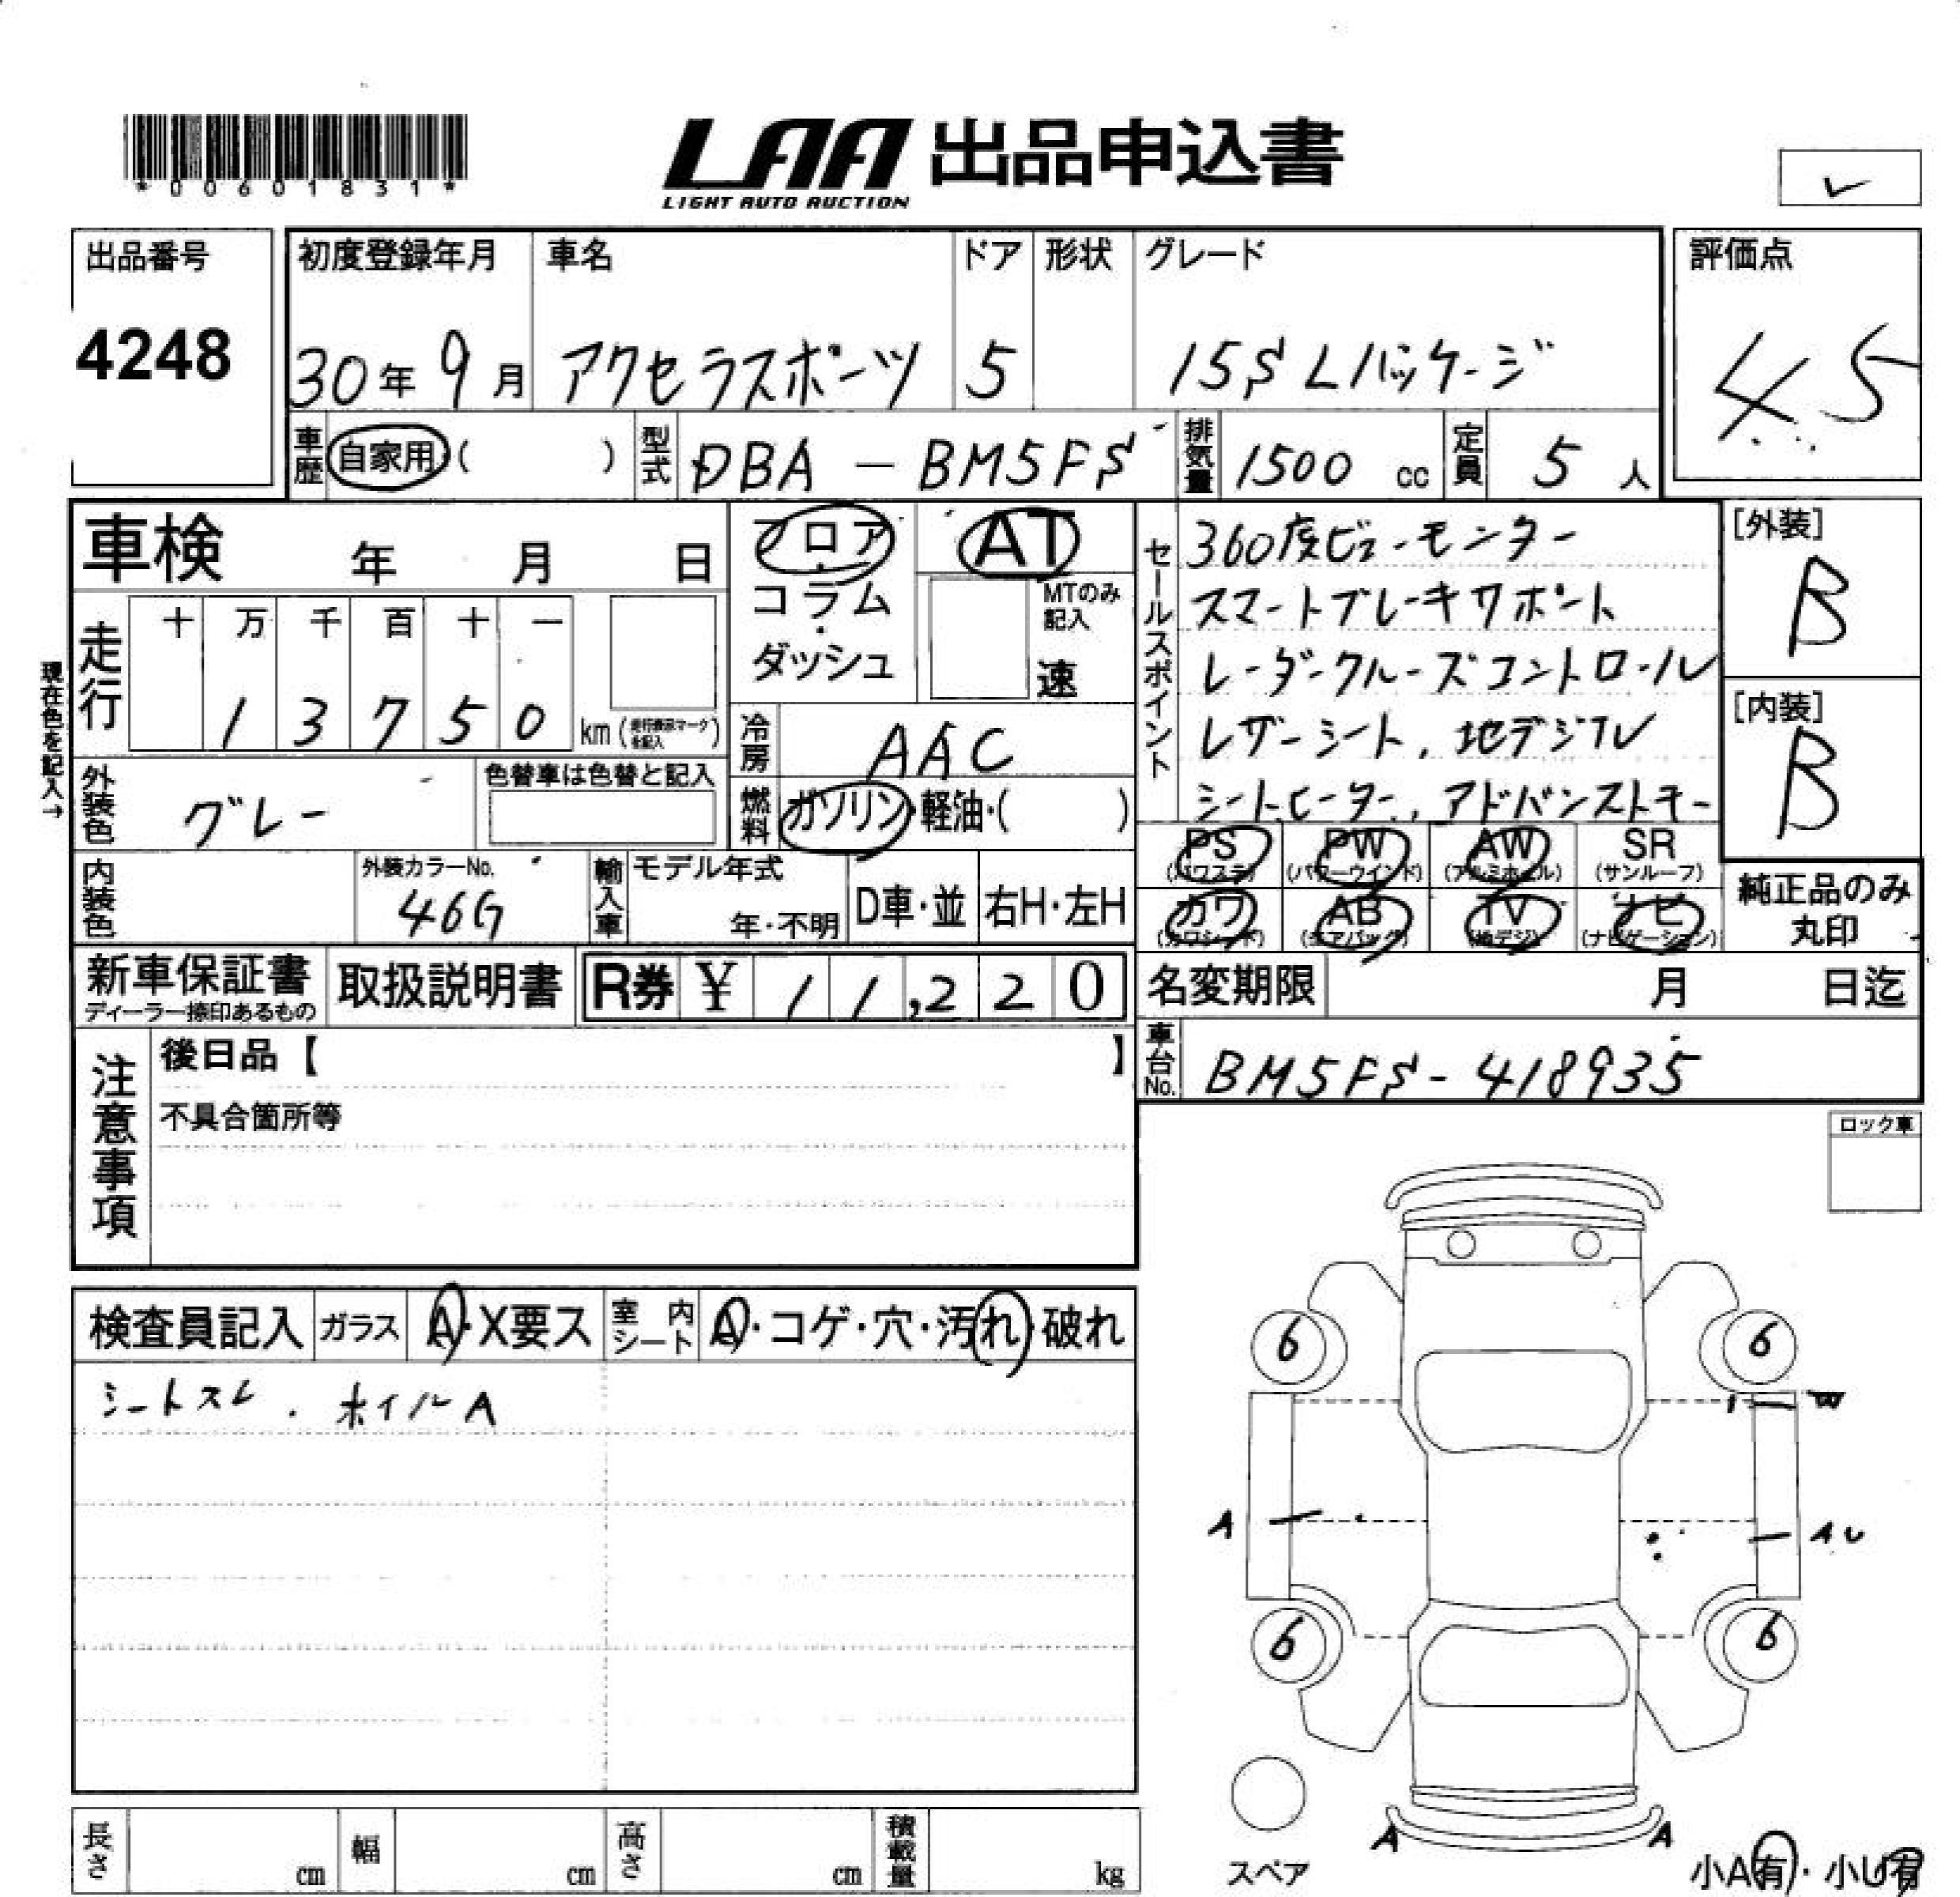 *00601831*
LAA 出品申込書
LIGHT AUTO AUCTION
出品番号 初度登録年月 車名 ドア 形状 グレード 評価点
4248 30年 9月 アクセラスポーツ 5 15S Lパッケージ 4.5
車歴 自家用( ) 型式 DBA-BM5FS 排気量 1500 cc 定員 5 人
車検 年 月 日
フロア・コラム・ダッシュ
AT
MTのみ記入
速
セールスポイント
360度ビューモニター
スマートブレーキサポート
レーダークルーズコントロール
レザーシート、地デジTV
シートヒーター、アドバンストキー
[外装]
B
[内装]
B
現在色を記入→
走行 十 万 千 百 十 一
1 3 7 5 0 km (走行表示マークを記入)
冷房 AAC
外装色 グレー 色替車は色替と記入
燃料 ガソリン・軽油・( )
PS (パワステ) PW (パワーウインド) AW (アルミホイール) SR (サンルーフ)
カワ (カワシート) AB (エアバッグ) TV (地デジ) ナビ (ナビゲーション)
純正品のみ丸印
内装色 外装カラーNo. 46G 輸入車 モデル年式 年・不明 D車・並 右H・左H
新車保証書 ディーラー捺印あるもの 取扱説明書 R券 ¥ 11,220
名変期限 月 日迄
車台No. BM5FS-418935
注意事項
後日品【 】
不具合箇所等
ロック車
検査員記入 ガラス A・X要ス 室内シート A・コゲ・穴・汚れ・破れ
シートスレ . ホイルA
6 6
W
A A U
6 6
A A
スペア
小A有・小U有
長さ cm 幅 cm 高さ cm 積載量 kg